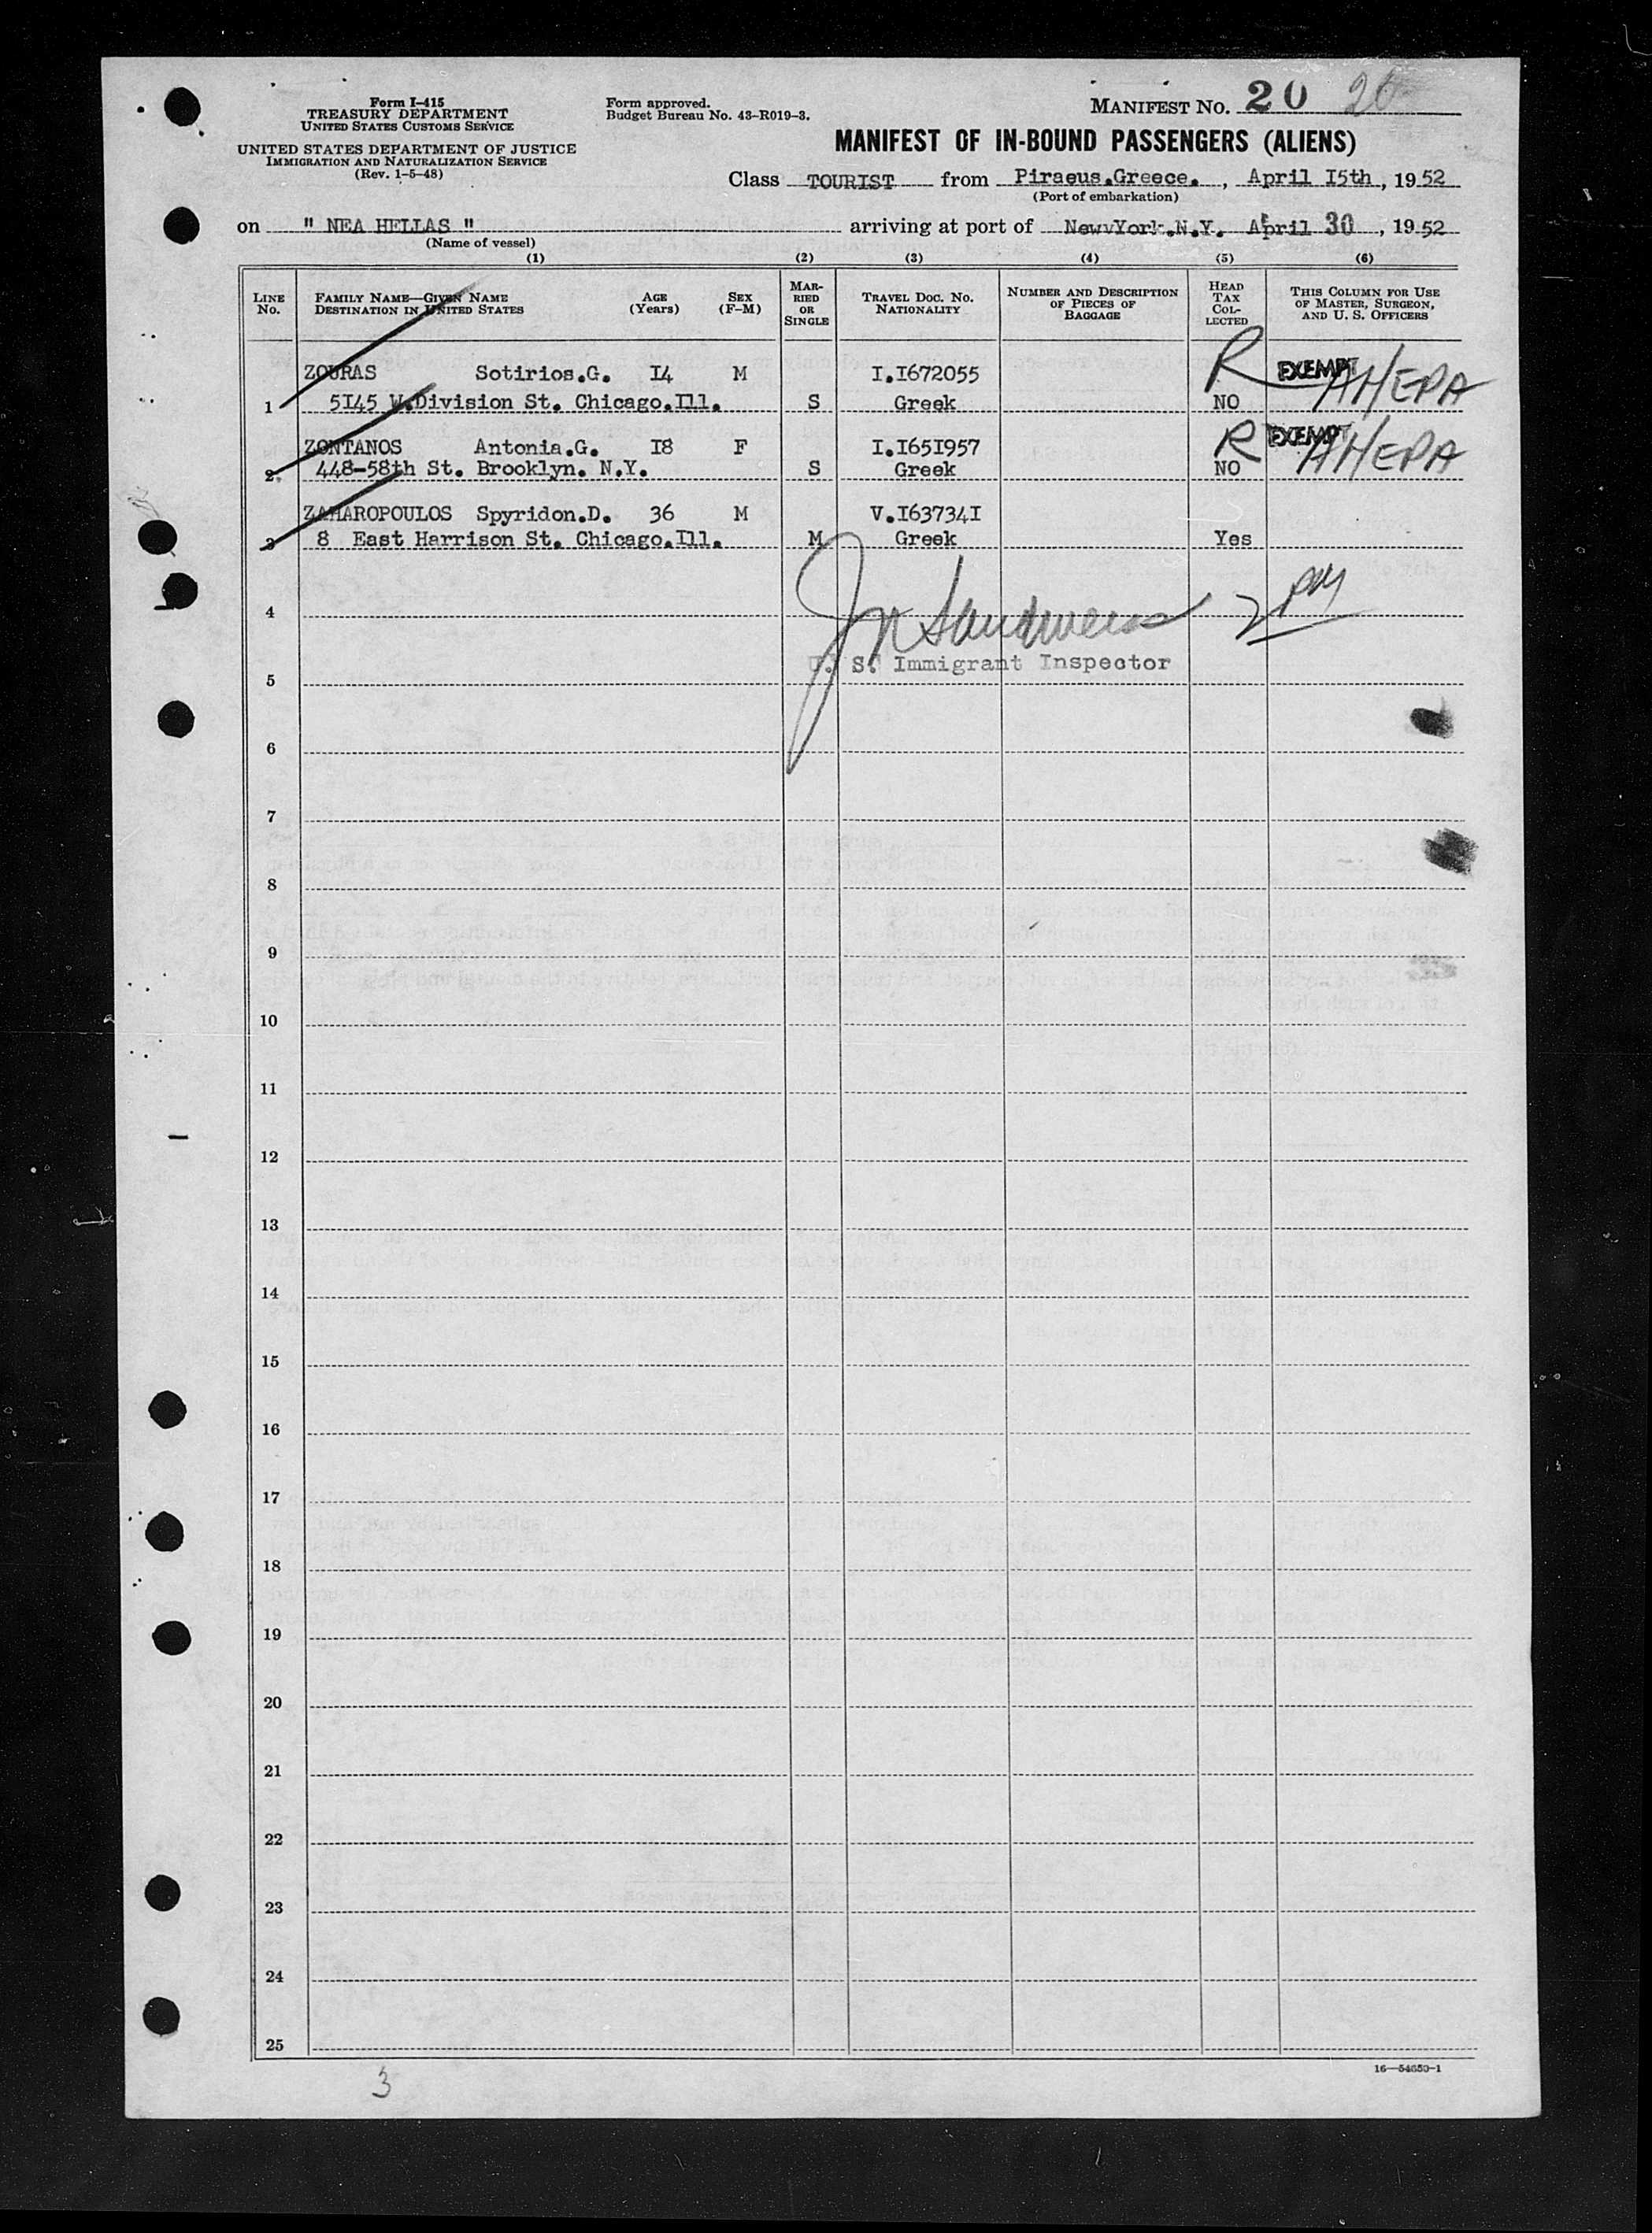 Form I-415
TREASURY DEPARTMENT
UNITED STATES CUSTOMS SERVICE
UNITED STATES DEPARTMENT OF JUSTICE
IMMIGRATION AND NATURALIZATION SERVICE
(Rev. 1-5-48)
Form approved.
Budget Bureau No. 43-R019-3.
MANIFEST NO. 20 20
MANIFEST OF IN-BOUND PASSENGERS (ALIENS)
Class TOURIST from Piraeus.Greece. , April I5th , 1952
(Port of embarkation)
on " NEA HELLAS " arriving at port of NewvYork.N.Y. April 30 , 1952
(Name of vessel)
(1) (2) (3) (4) (5) (6)
LINE No. FAMILY NAME—GIVEN NAME DESTINATION IN UNITED STATES AGE (Years) SEX (F-M) MARRIED OR SINGLE TRAVEL DOC. NO. NATIONALITY NUMBER AND DESCRIPTION OF PIECES OF BAGGAGE HEAD TAX COLLECTED THIS COLUMN FOR USE OF MASTER, SURGEON, AND U. S. OFFICERS
ZOURAS Sotirios.G. I4 M I.I672055 R EXEMPT AHEPA
1 5I45 W.Division St. Chicago.Ill. S Greek NO
ZONTANOS Antonia.G. I8 F I.I65I957 R EXEMPT AHEPA
2 448-58th St. Brooklyn. N.Y. S Greek NO
ZAHAROPOULOS Spyridon.D. 36 M V.I63734I
3 8 East Harrison St. Chicago.Ill. M Greek Yes
4 Sandweiss 2 PM
U. S. Immigrant Inspector
5
6
7
8
9
10
11
12
13
14
15
16
17
18
19
20
21
22
23
24
25
16—54650-1
3